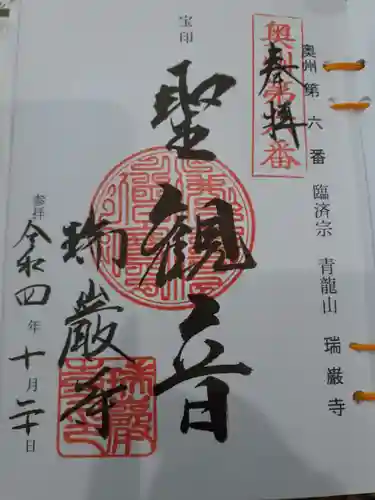 奥州第六番 臨済宗 青龍山 瑞巌寺
奥州第六番
奉拝
宝印
聖観音
瑞巌寺
瑞巌
参拝 令和四年十月二十日